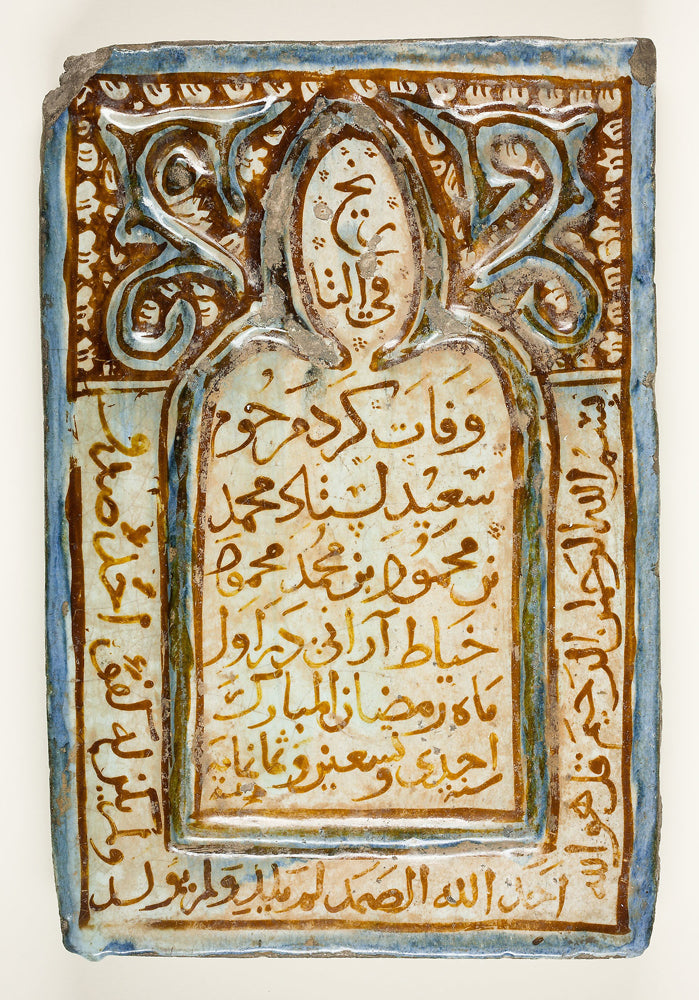 في التا
ريخ
وفات کرد مرحوم
سعید استاد محمد
بن محمود بن محمد محمود
خیاط آرانی در اول
ماه رمضان المبارك
سنه احدی و تسعین و ثمانمایه
بسم الله الرحمن الرحيم قل هو الله
احد الله الصمد لم يلد ولم يولد
ولم يكن له كفوا احد